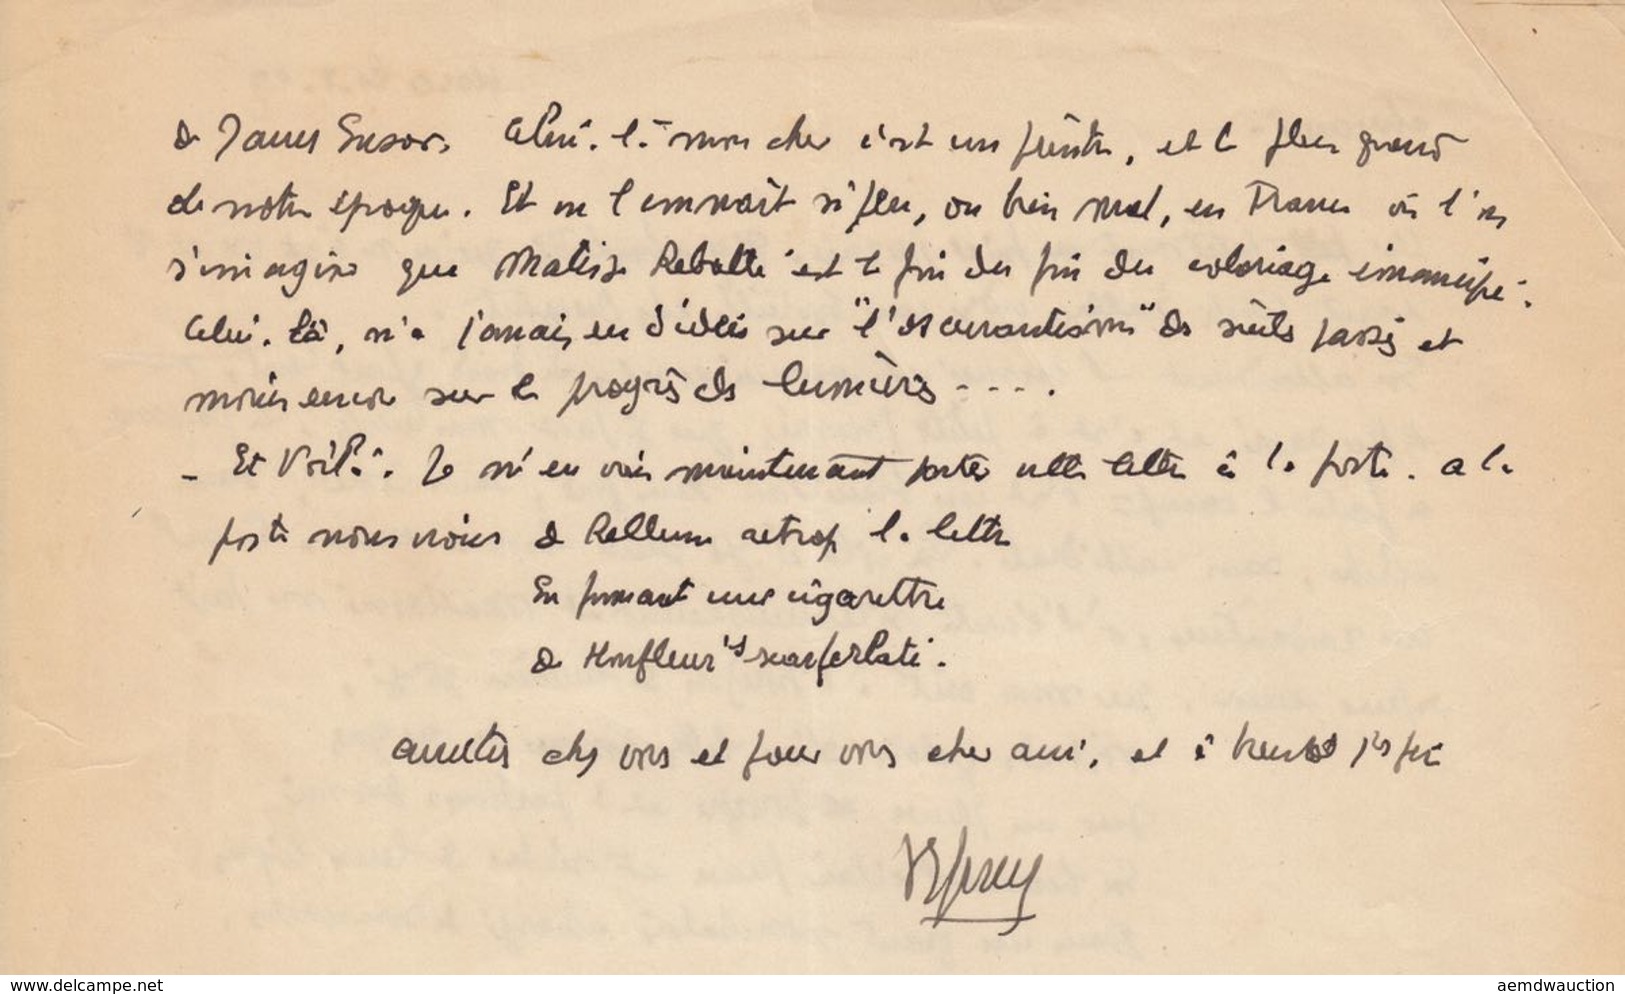 de James Ensor. Celui-là mon cher c'est un peintre, et le plus grand
de notre époque. Et on l'connaît si peu, ou bien mal, en France où l'on
s'imagine que Matisse est le fin du fin du coloriage émancipé.
Celui-là, n'a jamais eu d'idées sur "l'obscurantisme" des siècles passés et
moins encore sur le progrès des lumières ....
- Et Voilà. Je m'en vais maintenant porter cette lettre à la poste. a la
poste nous irons de la lettre
En fumant une cigarette
de Honfleur's scarferlati.
amitiés chez vous et pour vous cher ami, et à bientôt j'espère
www.delcampe.net
aemdwauction